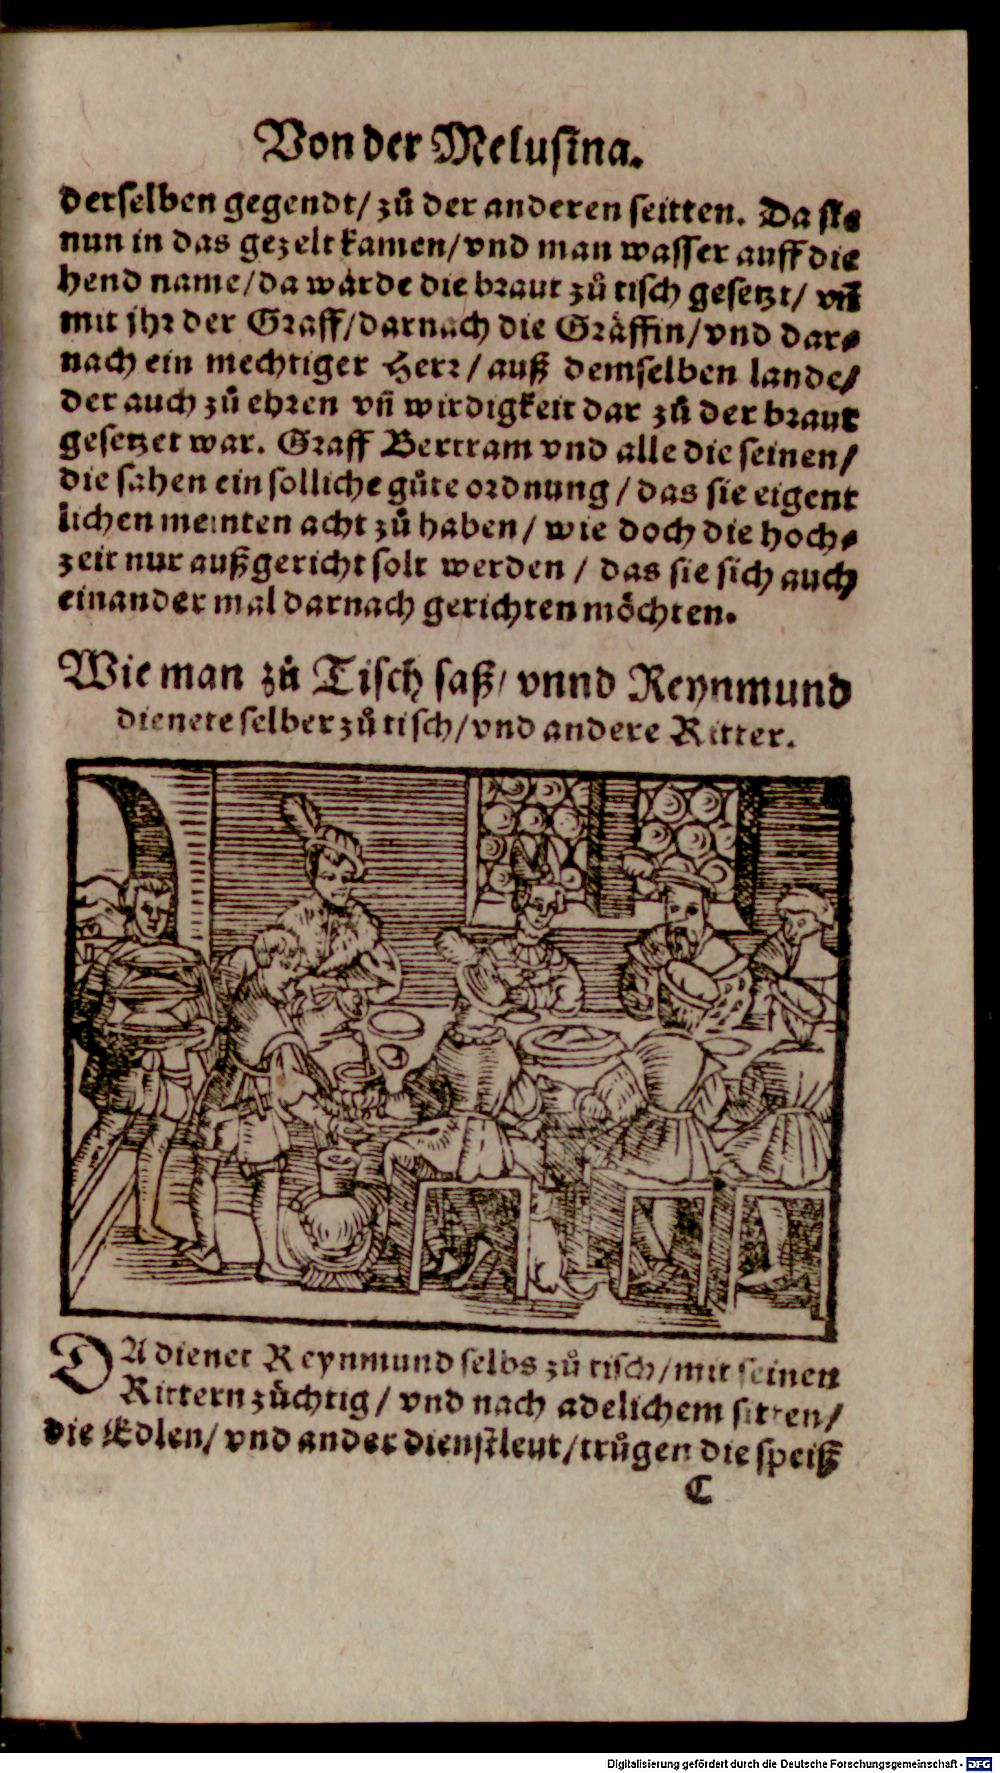 Von der Melusina.
derselben gegendt/ zů der anderen seitten. Da sie
nun in das gezelt kamen/ vnd man wasser auff die
hend name/ da warde die braut zů tisch gesetzt/ vñ
mit jhr der Graff/ darnach die Gräffin/ vnd dar⸗
nach ein mechtiger Herr/ auß demselben lande/
der auch zů ehren vñ wirdigkeit dar zů der braut
gesetzet war. Graff Bertram vnd alle die seinen/
die sahen ein solliche gůte ordnung/ das sie eigent
lichen meinten acht zů haben/ wie doch die hoch⸗
zeit nur außgericht solt werden/ das sie sich auch
einander mal darnach gerichten möchten.
Wie man zů Tisch saß/ vnnd Reynmund
dienete selber zů tisch/ vnd andere Ritter.
DA dienet Reynmund selbs zů tisch/ mit seinen
Rittern züchtig/ vnd nach adelichem sitten/
die Edlen/ vnd ander dienstleut/ trůgen die speiß
C
Digitalisierung gefördert durch die Deutsche Forschungsgemeinschaft - DFG